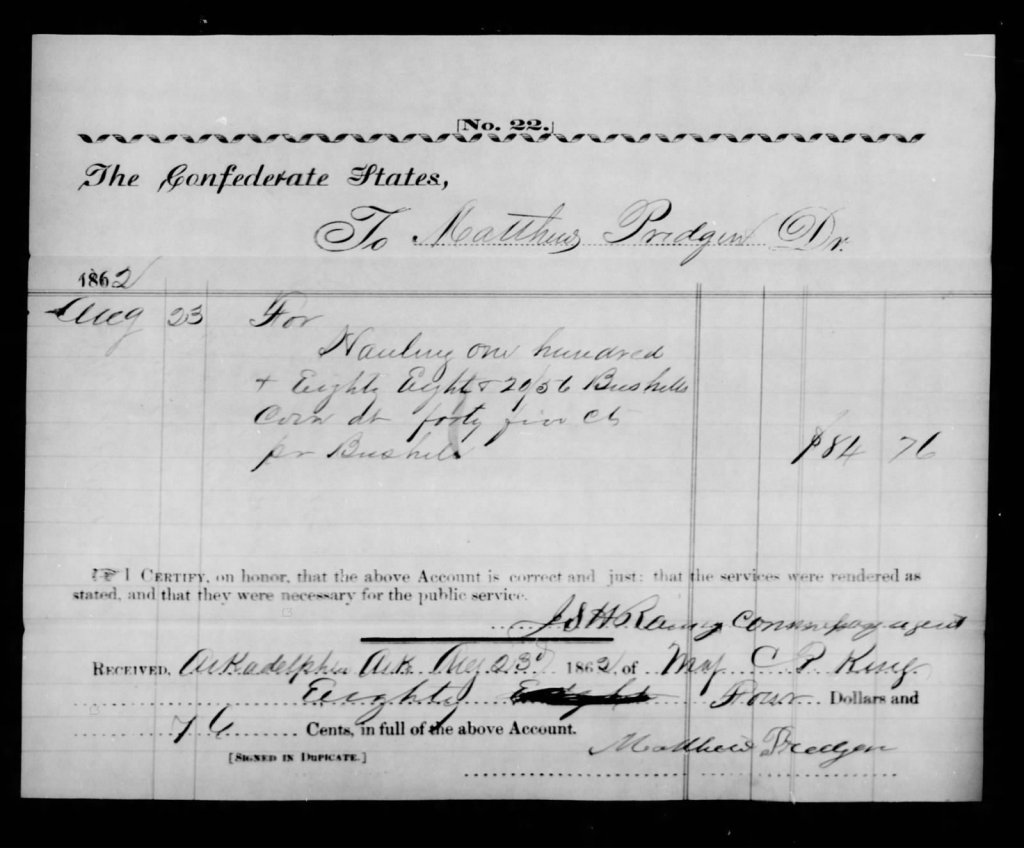 [No. 22.]
The Confederate States,
To Matthew Pridgen Dr.
1862
Aug 23 For
Hauling one hundred
+ Eighty Eight & 20/56 Bushels
Corn at forty five cts
pr Bushels $84 76
I CERTIFY, on honor, that the above Account is correct and just; that the services were rendered as
stated, and that they were necessary for the public service.
J S H Rainey agent
RECEIVED, Arkadelphia Ark Aug 23d 1862, of Maj C P King
Eighty Four Dollars and
76 Cents, in full of the above Account.
Matthew Pridgen
[SIGNED IN DUPICATE.]